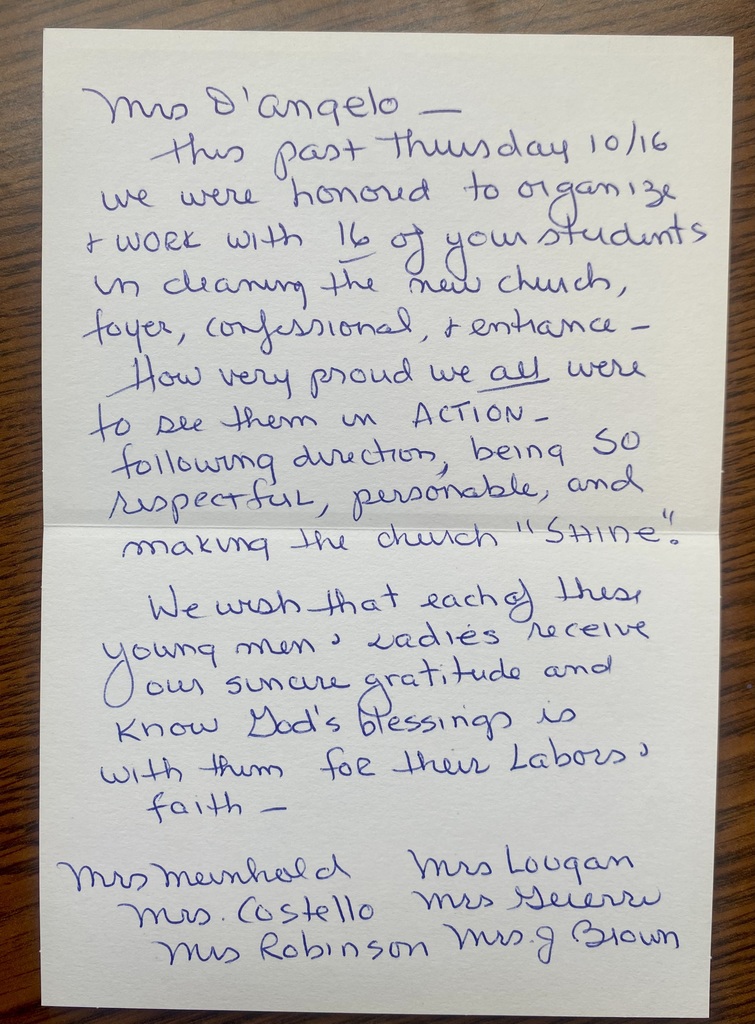 Mrs D'angelo —
This past Thursday 10/16
we were honored to organize
+ work with 16 of your students
in cleaning the new church,
foyer, confessional, + entrance –
How very proud we all were
to see them in ACTION –
following direction, being SO
respectful, personable, and
making the church "SHINE".
We wish that each of these
young men & ladies receive
our sincere gratitude and
know God's blessings is
with them for their Labors &
faith –
Mrs Meinhold Mrs Lougan
Mrs. Costello Mrs
Mrs Robinson Mrs. J Brown